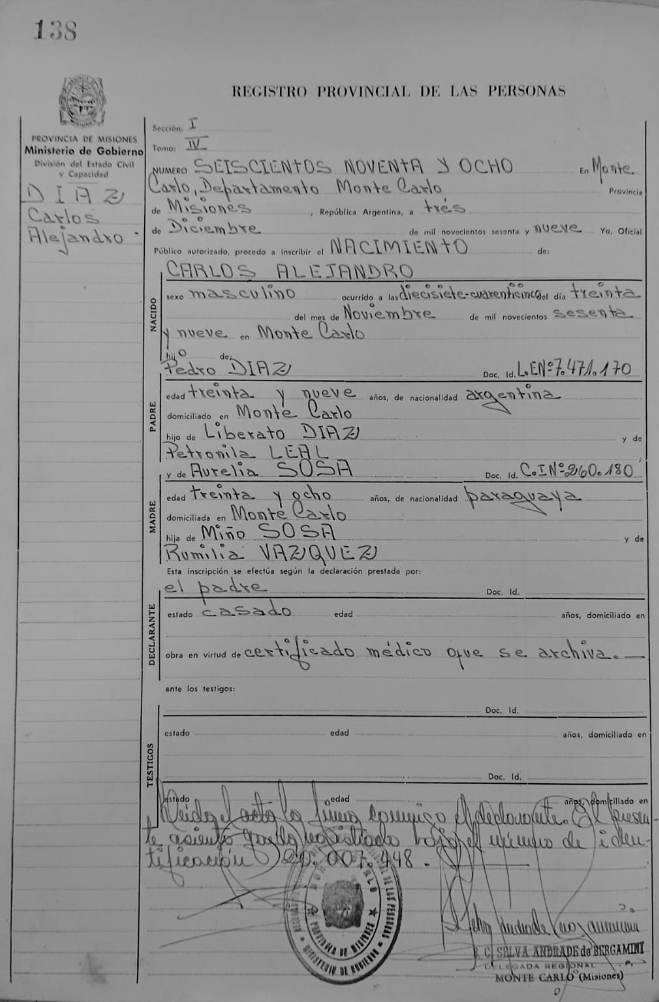 138
REGISTRO PROVINCIAL DE LAS PERSONAS
PROVINCIA DE MISIONES
Ministerio de Gobierno
División del Estado Civil
y Capacidad
DIAZ
Carlos
Alejandro
Sección: I
Tomo: IV
NUMERO SEISCIENTOS NOVENTA Y OCHO En Monte
Carlo, Departamento Monte Carlo Provincia
de Misiones, República Argentina, a trés
de Diciembre de mil novecientos sesenta y nueve Yo, Oficial
Público autorizado, procedo a inscribir el NACIMIENTO de:
NACIDO
CARLOS ALEJANDRO
sexo masculino ocurrido a las diecisiete-cuarenticinco del día treinta
del mes de Noviembre de mil novecientos sesenta
y nueve en Monte Carlo
hijo de:
Pedro DIAZ Doc. Id. L.E.Nº 7.471.170
PADRE
edad treinta y nueve años, de nacionalidad argentina
domiciliado en Monte Carlo
hijo de Liberato DIAZ y de
Petronila LEAL
y de Aurelia SOSA Doc. Id. C.I.Nº 260.180
MADRE
edad treinta y ocho años, de nacionalidad paraguaya
domiciliada en Monte Carlo
hija de Miño SOSA y de
Rumilia VAZQUEZ
Esta inscripción se efectúa según la declaración prestada por:
DECLARANTE
el padre Doc. Id.
estado casado edad años, domiciliado en
obra en virtud de certificado médico que se archiva.—
ante los testigos:
TESTIGOS
Doc. Id.
estado edad años, domiciliado en
Doc. Id.
estado edad años, domiciliado en
Leída el acta la firma conmigo el declarante. El presen-
te asiento queda registrado bajo el número de iden-
tificación 007.448.-
PROVINCIA DE MISIONES
MINISTERIO DE GOBIERNO
SELVA ANDRADE de BERGAMINI
DELEGADA REGIONAL
MONTE CARLO (Misiones)